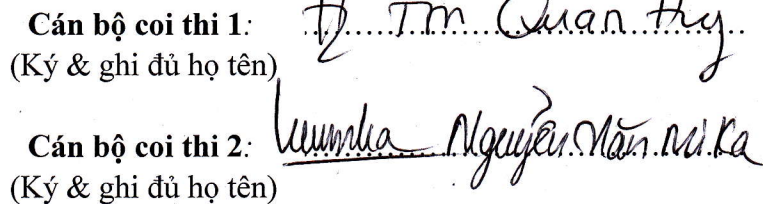 Cán bộ coi thi 1: TM Quan Huy
(Ký & ghi đủ họ tên)
Cán bộ coi thi 2: Nguyễn Văn Mi Ka
(Ký & ghi đủ họ tên)